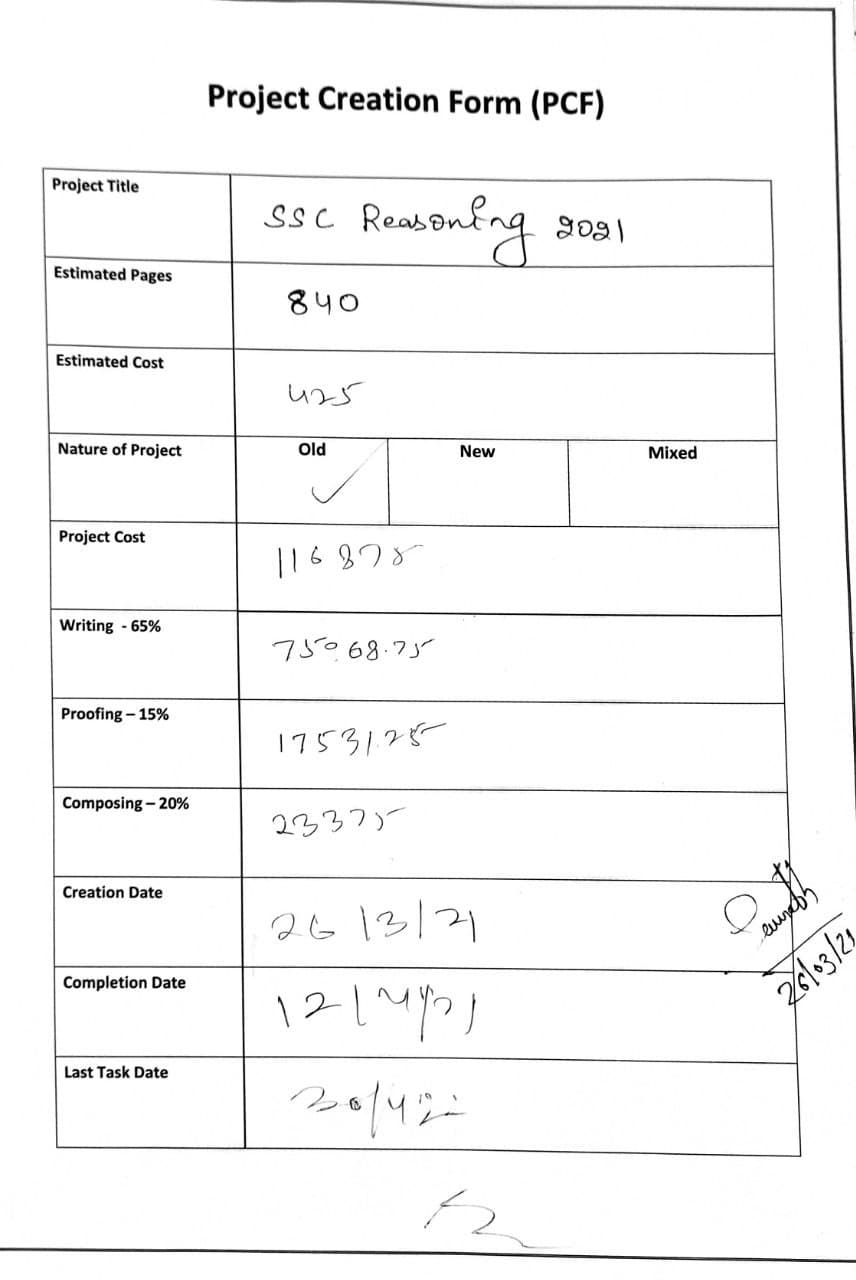 Project Creation Form (PCF)
Project Title SSC Reasoning 2021
Estimated Pages 840
Estimated Cost 425
Nature of Project Old ✓ New Mixed
Project Cost 116875
Writing - 65% 75968.75
Proofing – 15% 17531.25
Composing – 20% 23375
Creation Date 26/3/21
Completion Date 12/4/21
Last Task Date 30/4
26/03/21